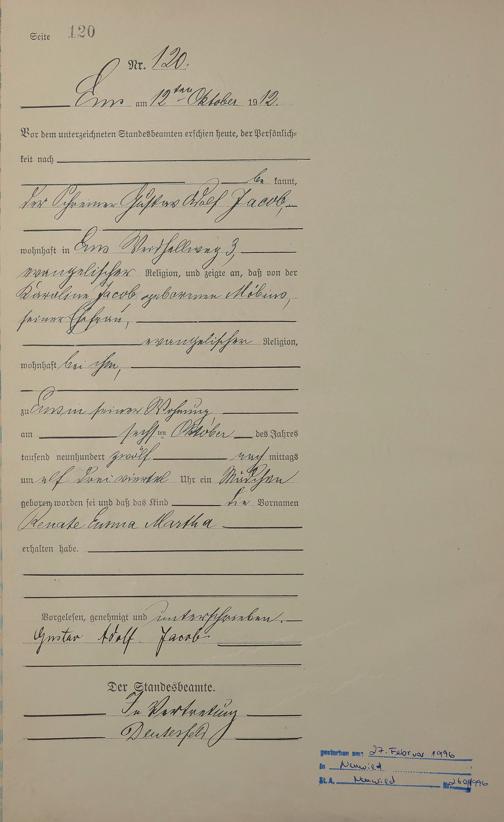 Seite 120
Nr. 120.
Ems am 12ten Oktober 1912.
Vor dem unterzeichneten Standesbeamten erschien heute, der Persönlich-
keit nach
be kannt,
der Schreiner Gustav Adolf Jacob,
wohnhaft in Ems 3,
evangelischer Religion, und zeigte an, daß von der
Karoline Jacob, geborenen Möbius,
seiner Ehefrau,
evangelischer Religion,
wohnhaft bei ihm,
zu Ems in seiner Wohnung
am sechsten Oktober des Jahres
tausend neunhundert zwölf nach mittags
um elf dreiviertel Uhr ein Mädchen
geboren worden sei und daß das Kind die Vornamen
Renate Emma Martha
erhalten habe.
Vorgelesen, genehmigt und unterschrieben.
Gustav Adolf Jacob
Der Standesbeamte.
In Vertretung
gestorben am: 27. Februar 1996
in Neuwied
St.A. Neuwied Nr.